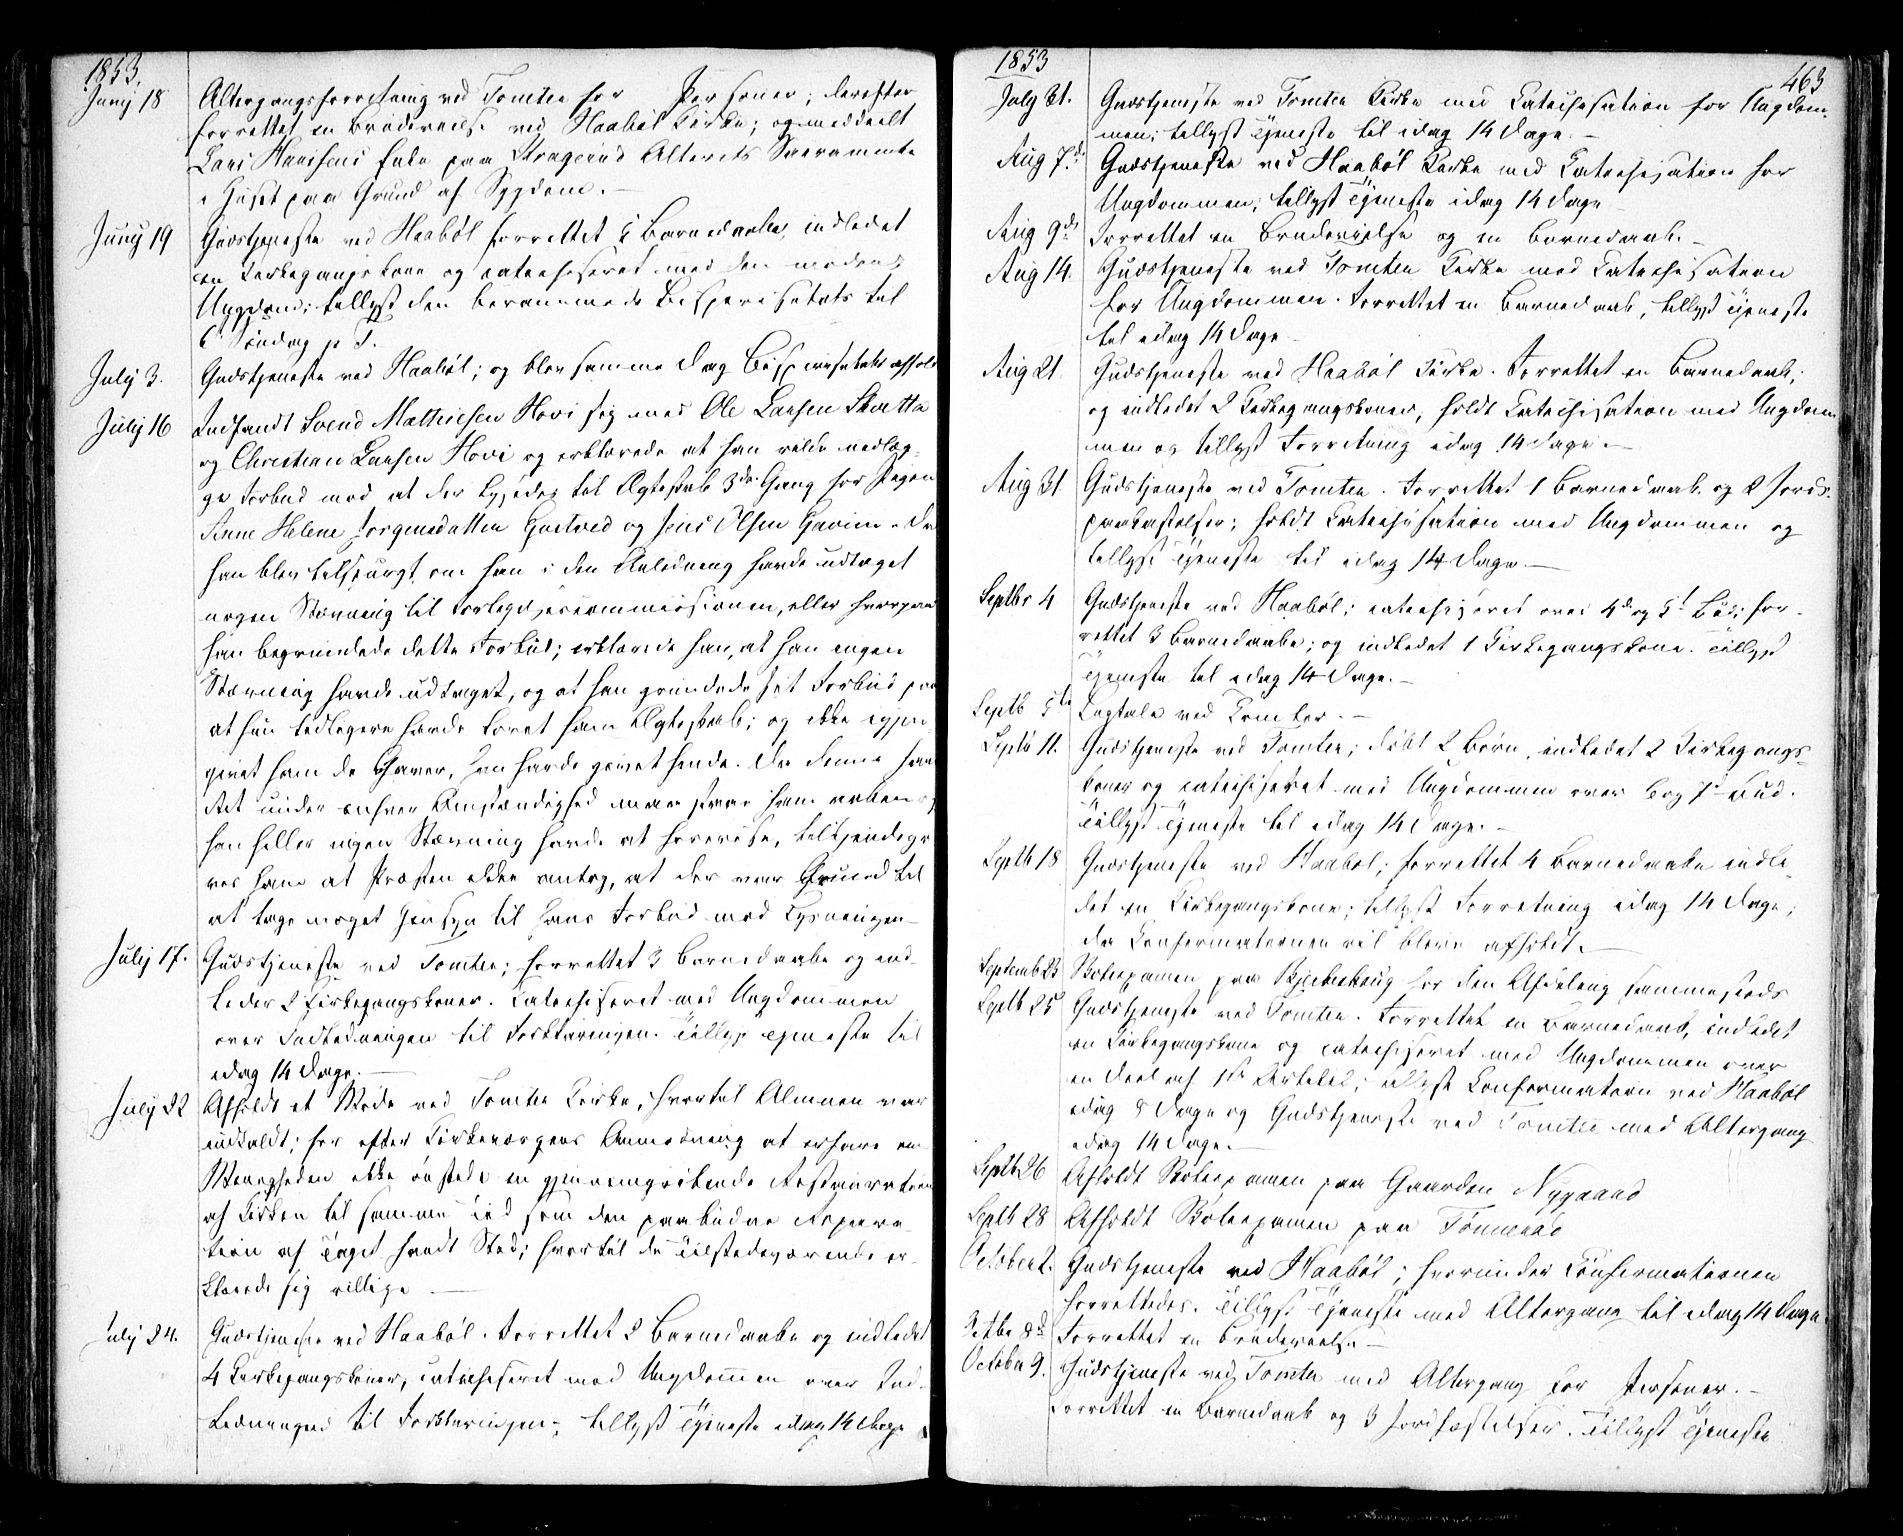 1853.
Juny 18 Altergangsforretning ved Tomter for Personer; derefter
forrettet en Brudevielse ved Haabøl Kirke; og meddeelt
Lars Hansens Enke paa Kragerud Alterets Sacramente
i Huset paa Grund af Sygdom. –
Juny 19 Gudstjeneste ved Haabøl forrettet 5 Barnedaabe, indledet
en Kirkegangskone og catechiseret med den modens
Ungdom; tillyst den berammede Bispevisitats til
6 Søndag p. T.
July 3. Gudstjeneste ved Haabøl; og blev samme Dag Bispevisitats afholdt
July 16 Indfandt Svend Mathiesen Hovi sig med Ole Larsen Skotta
og Christian Larsen Hovi og erklærede at han vilde nedlæg-
ge Forbud mod at der lystes til Ægteskab 3de Gang for Pigen
Anne Helene Jørgensdatter Gastved og Jens Olsen Haven. Da
han blev tilspurgt, om han i den Anledning havde udtaget
nogen Stævning til Forligelsescommissionen, eller hvorpaa
han begrundede dette Forbud; erklærede han, at han ingen
Stævning havde udtaget, og at han grundede sit Forbud paa
at hun tidligere havde lovet ham Ægteskab; og ikke igjen-
givet ham de Gaver, han havde givet hende. Da denne hans
Ret under enhver Omstændighed maae staae ham aaben og
han heller ingen Stævning havde at forevise, tilkjendega-
ves ham at Præsten ikke antog, at der var Grund til
at tage noget Hensyn til hans Forbud mod Lysningen –
July 17. Gudstjeneste ved Tomter; forrettet 3 Barnedaabe og ind-
leder 2 Kirkegangskoner. Catechiseret med Ungdommen
over Indledningen til Forklaringen. Tillyst Tjeneste til
idag 14 Dage. –
July 22 Afholdt et Møde ved Tomter Kirke, hvortil Almuen var
indkaldt; for efter Kirkeværgens Anmodning at erfare om
Menigheden ikke ønskede en gjennemgribende Restauration
af Kirken til samme Tid som den paabudne Repara-
tion af Taget fandt Sted; hvortil de Tilstedeværende er-
klærede sig villige –
July 24. Gudstjeneste ved Haabøl. Forrettet 2 Barnedaabe og indledet
4 Kirkegangskoner, catechiseret med Ungdommen over Ind-
ledningen til Forklaringen; tillyst Tjeneste idag 14 Dage
1853
463
July 31. Gudstjeneste ved Tomter Kirke med Catechisation for Ungdom-
men; tillyst Tjeneste til idag 14 Dage. –
Aug 7de Gudstjeneste ved Haabøl Kirke med Catechisation for
Ungdommen; tillyst Tjeneste idag 14 Dage
Aug 9de Forrettet en Brudevielse og en Barnedaab. –
Aug 14. Gudstjeneste ved Tomter Kirke med Catechisation
for Ungdommen. Forrettet en Barnedaab, tillyst Tjeneste
til idag 14 Dage
Aug 21. Gudstjeneste ved Haabøl Kirke. Forrettet en Barnedaab;
og indledet 2 Kirkegangskoner, holdt Catechisation med Ungdom-
men og tillyst Forretning idag 14 Dage. –
Aug 31 Gudstjeneste ved Tomter. Forrettet 1 Barnedaab og 2 Jords-
paakastelser; holdt Catechisation med Ungdommen og
tillyst Tjeneste til idag 14 Dage –
Septbr 4 Gudstjeneste ved Haabøl; catechiseret over 4de og 5te Bud; for-
rettet 3 Barnedaabe; og indledet 1 Kirkegangskone. Tillyst
Tjeneste til idag 14 Dage. –
Septb 5te Ligtale ved Tomter. –
Septb 11. Gudstjeneste ved Tomter; døbt 2 Børn, indledet 2 Kirkegangs-
koner og catechiseret med Ungdommen over 6 og 7de Bud.
Tillyst Tjeneste til idag 14 Dage. –
Septb 18 Gudstjeneste ved Haabøl; forrettet 4 Barnedaabe indle-
det en Kirkegangskone; tillyst Forretning idag 14 Dage;
da Confirmationen vil blive afholdt. –
Septemb 23 Skoleexamen paa Bjerkehaug for den Afdeling sammesteds
Septb 25 Gudstjeneste ved Tomter. Forrettet en Barnedaab, indledet
en Kirkegangskone og catechiseret med Ungdommen over
en Deel af 1ste Artikel; tillyst Confirmation ved Haabøl
idag 8 Dage og Gudstjeneste ved Tomter med Altergang
idag 14 Dage. –
Septb 26 Afholdt Skoleexamen paa Gaarden Nygaard
Septb 28 Afholdt Skoleexamen paa Tønnerud
October 2. Gudstjeneste ved Haabøl; hvorunder Confirmationen
forrettedes. Tillyst Tjeneste med Altergang til idag 14 Dage.
Octbr 8de Forrettet en Brudevielse –
October 9. Gudstjeneste ved Tomter med Altergang for Personer. –
Forrettet en Barnedaab og 3 Jordfæstelser. Tillyst Tjeneste